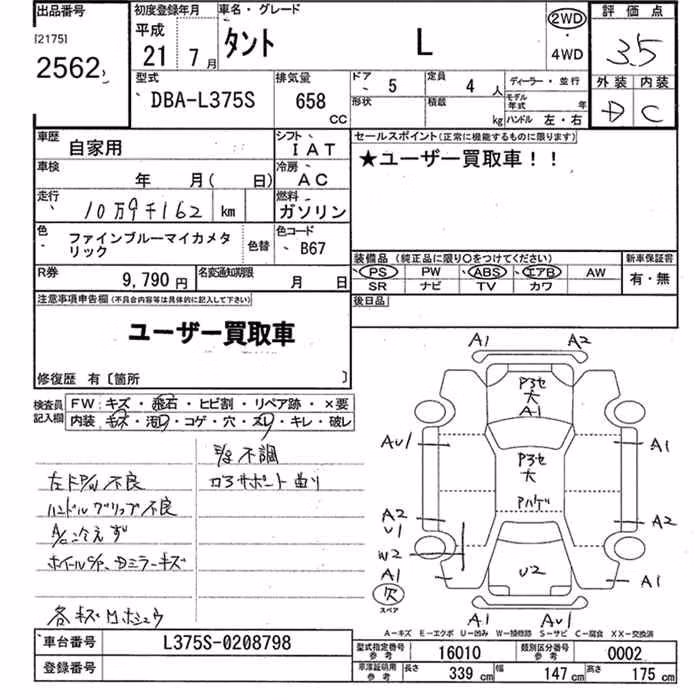 出品番号 初度登録年月 車名・グレード 2WD 評価点
[2175] 平成 タント L ・ 3.5
2562 21 7月 4WD
外装 内装
型式 排気量 ドア 5 定員 4人 ディーラー・並行 D C
DBA-L375S 658 形状 積載 モデル年式 年
CC kg ハンドル 左・右
車歴 自家用 シフト IAT セールスポイント(正常に機能するものに限ります)
車検 年 月( 日) 冷房 AC ★ユーザー買取車!!
走行 10万9千162 km 燃料 ガソリン
色 ファインブルーマイカメタリック 色替 色コード B67
装備品(純正品に限り○をつけてください) 新車保証書
R券 9,790円 名変通知期限 月 日 PS PW ABS エアB AW 有・無
SR ナビ TV カワ
注意事項申告欄(不具合内容等は具体的に記入して下さい) 後日品
ユーザー買取車
修復歴 有〔箇所 〕
検査員記入欄 FW:キズ・飛石・ヒビ割・リペア跡・×要
内装:キズ・汚レ・コゲ・穴・スレ・キレ・破レ
不調
左ドアP/W不良 ロアサポート曲り
ハンドルグリップ不良
A/C冷えず
ホイールC/P、Dミラーキズ
各キズ
A1 A2
P3セ
大
A1
AU1 A1
P3セ
大
Pハゲ
A2 A2
U1
W2
A1 U2 A1
欠
スペア
A1 AU1
A-キズ E-エクボ U-凹み W-補修跡 S-サビ C-腐食 XX-交換済
車台番号 L375S-0208798 型式指定番号 参考 16010 類別区分番号 参考 0002
登録番号 車庫証明用 参考 長さ 339 cm 幅 147 cm 高さ 175 cm